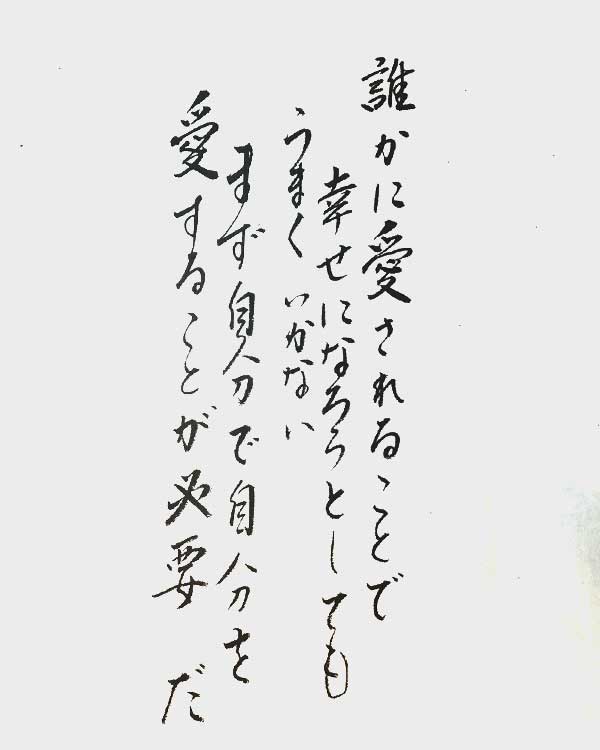 誰かに愛されることで
幸せになろうとしても
うまくいかない
まず自分で自分を
愛することが必要だ